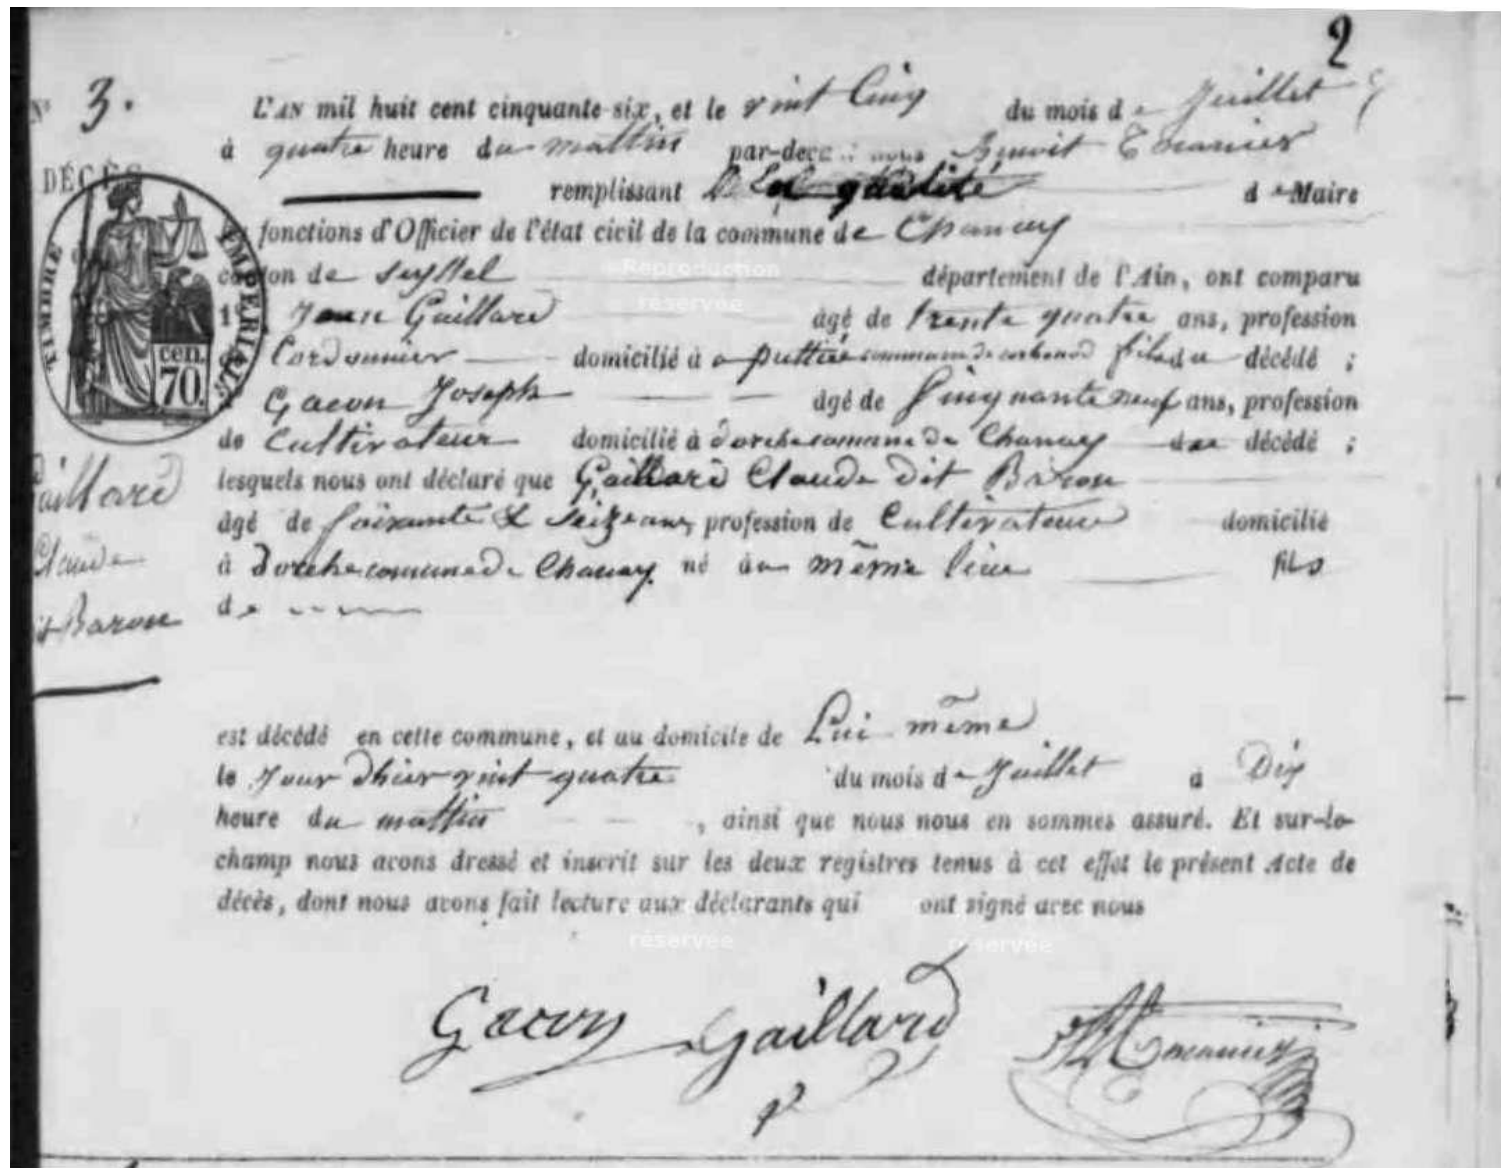 2
N° 3.
L'AN mil huit cent cinquante-six, et le vint Cinq du mois de Juillet
à quatre heure du mattin par-devant nous Benoit
DÉCÈS
remplissant De Maire
fonctions d'Officier de l'état civil de la commune de Chanay
canton de Seyssel département de l'Ain, ont comparu
1° Jean Gaillard âgé de trente quatre ans, profession
de Cordonnier domicilié à commune de corbonod fils du décédé ;
Gacon Joseph âgé de Cinquante neuf ans, profession
de Cultivateur domicilié à dorche comune de Chanay du décédé ;
lesquels nous ont déclaré que Gaillard Claude dit Baron
âgé de Soixante & Seize ans, profession de Cultivateur domicilié
à dorche comune de Chanay né au même lieu fils
de
Gaillard
Claude
dit Baron
TIMBRE IMPERIAL
cen.
70.
est décédé en cette commune, et au domicile de Lui même
le Jour dhier vint quatre du mois de Juillet à Dix
heure du mattin, ainsi que nous nous en sommes assuré. Et sur-le-
champ nous avons dressé et inscrit sur les deux registres tenus à cet effet le présent Acte de
décès, dont nous avons fait lecture aux déclarants qui ont signé avec nous
Gacon Gaillard
Reproduction
réservée
réservée
réservée